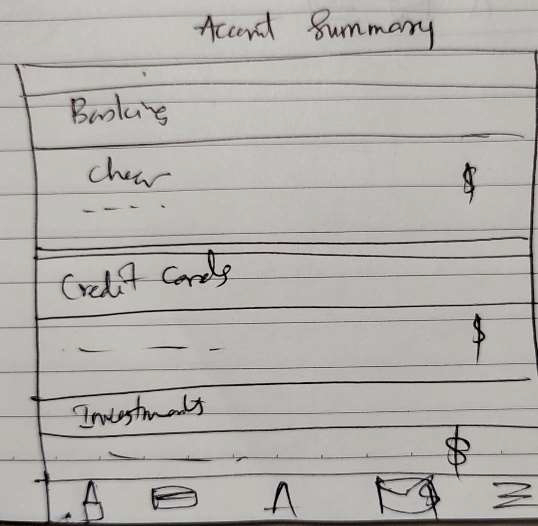 Account Summary
Banking
$
Credit Cards
$
Investments
$